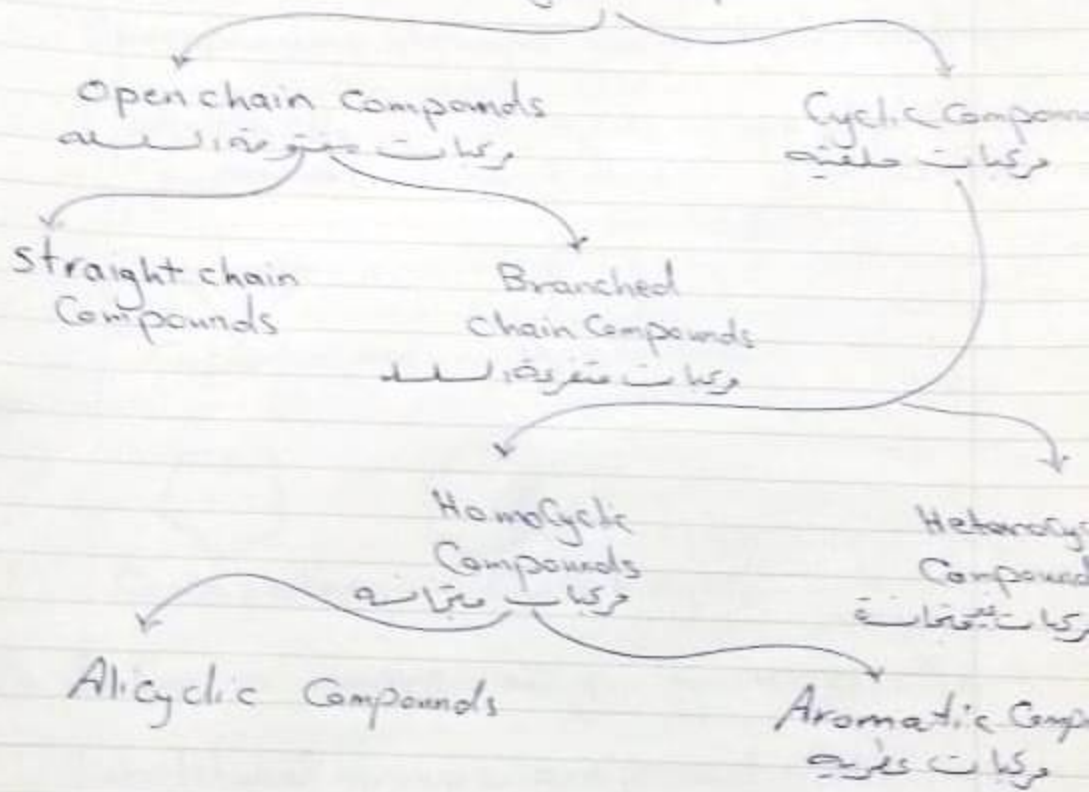 Open chain Compounds
مركبات مفتوحة السلسلة
Cyclic Compoun
مركبات حلقيه
straight chain
Compounds
Branched
chain Compounds
مركبات متفرعة السلسلة
HomoCyclic
Compounds
مركبات متجانسه
Heterocy
Compound
مركبات غير متجانسة
Alicyclic Compounds
Aromatic Comp
مركبات عطريه